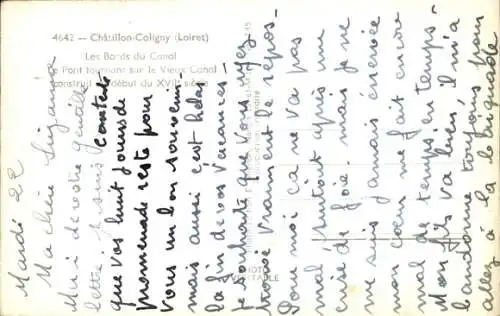 4642 — Châtillon-Coligny (Loiret)
Les Bords du Canal
Le Pont tournant sur le Vieux Canal
construit au début du XVIIe siècle
Mardi 22
Ma chère Suzanne
Merci de votre gentille
lettre je suis contente
que vos huit jours de
promenade reste pour
vous un bon souvenir
mais aussi c'est hélas
la fin de vos vacances
je souhaite que vous vous soyez
vraiment le repos
Pour moi ça ne va pas
mal surtout après une
crise de foie. mais je ne
me suis jamais énervée
mon cœur me fait encore
mal de temps en temps.
Mon fils va bien, il m'a
abandonné toujours pour
allez à la brigade
PHOTO
VERITABLE